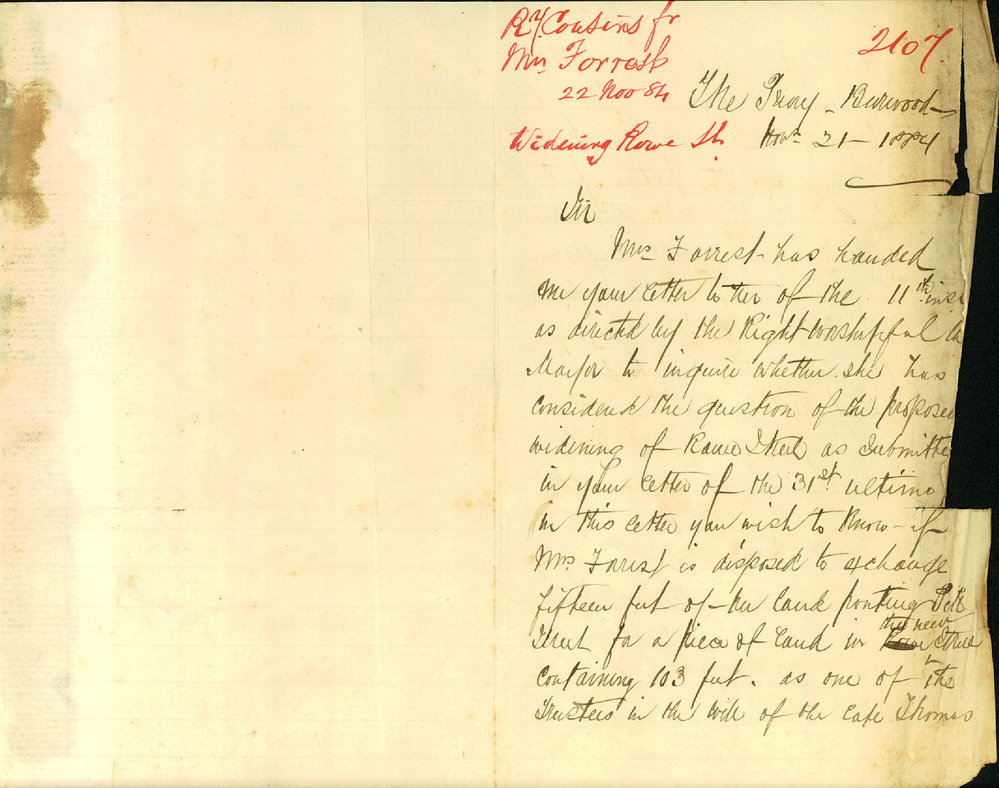 Ry. Cousins fr
Mrs Forrest
22 Nov 84
2107.
Widening Rowe St.
The Priory - Burwood -
Novr 21 - 1884
Sir
Mrs Forrest has handed
me your letter to her of the 11th inst
as directed by the Right Worshipful
Mayor to inquire whether she has
considered the question of the propose
widening of Rowe Street as submitte
in your letter of the 31st ultimo
in this letter you wish to know - if
Mrs Forrest is disposed to exchange
fifteen feet of - her land fronting Pitt
Street for a piece of land in the new Street
containing 103 feet. as one of the
Trustees in the Will of the late Thomas